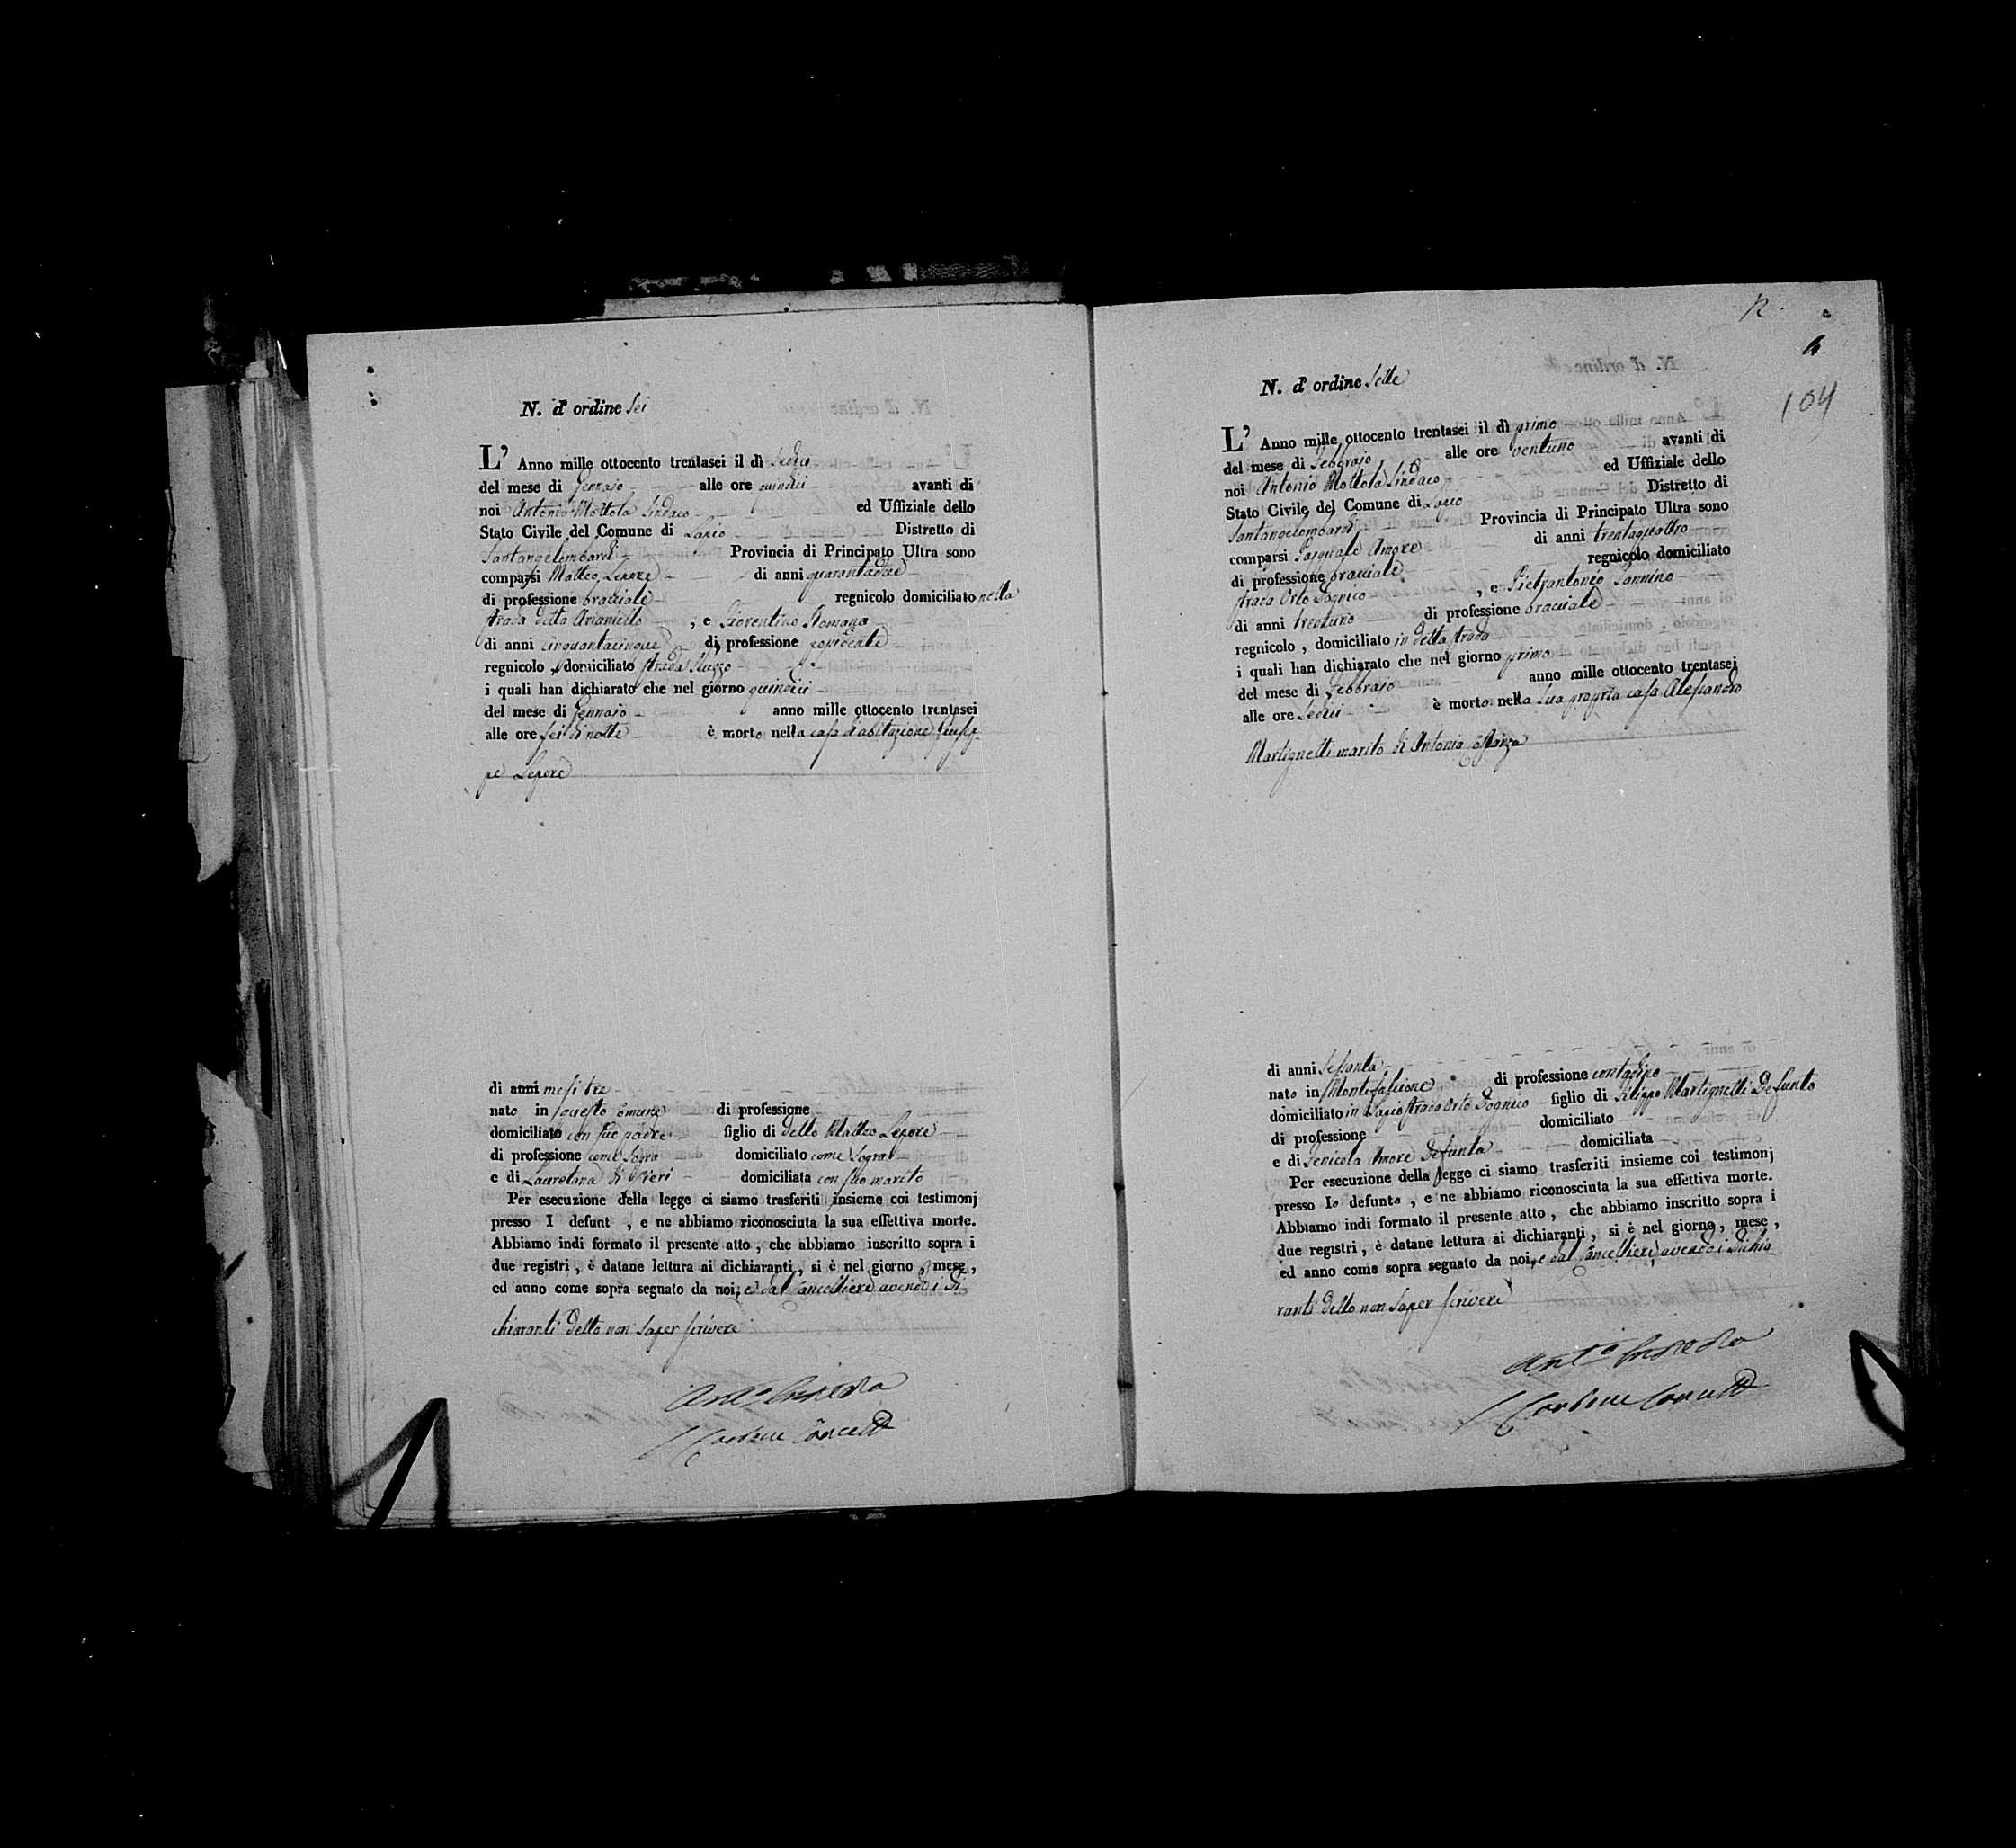 N. d' ordine Sei
L' Anno mille ottocento trentasei il dì Sedici
del mese di Gennajo alle ore quindici avanti di
noi Antonio Mottola Sindaco ed Uffiziale dello
Stato Civile del Comune di Lapio Distretto di
Santangelombardi Provincia di Principato Ultra sono
comparsi Matteo Lepore di anni quarantadue
di professione bracciale regnicolo domiciliato nella
strada detta Arianiello , e Fiorentino Romano
di anni cinquantacinque di professione
regnicolo , domiciliato strada
i quali han dichiarato che nel giorno quindici
del mese di Gennajo anno mille ottocento trentasei
alle ore sei di notte è morto nella casa d'abitazione Giusep-
pe Lepore
di anni mesi tre
nato in questo Comune di professione
domiciliato con suo padre figlio di detto Matteo Lepore
di professione come Sopra domiciliato come Sopra
e di Lauretana domiciliata con suo marito
Per esecuzione della legge ci siamo trasferiti insieme coi testimonj
presso l defunt , e ne abbiamo riconosciuta la sua effettiva morte.
Abbiamo indi formato il presente atto , che abbiamo inscritto sopra i
due registri , è datane lettura ai dichiaranti , si è nel giorno , mese ,
ed anno come sopra segnato da noi, e dal Cancelliere avendo i di
chiaranti detto non saper scrivere
12
104
N. d' ordine Sette
L' Anno mille ottocento trentasei il dì primo
del mese di Febbrajo alle ore ventuno avanti di
noi Antonio Mottola Sindaco ed Uffiziale dello
Stato Civile del Comune di Lapio Distretto di
Santangelombardi Provincia di Principato Ultra sono
comparsi Pasquale Amore di anni trentaquattro
di professione bracciale regnicolo domiciliato
strada Orto Dognico , e Pietrantonio Iannino
di anni trentuno di professione bracciale
regnicolo , domiciliato in detta strada
i quali han dichiarato che nel giorno primo
del mese di Febbrajo anno mille ottocento trentasei
alle ore Sedici è morto nella sua propria casa Alessandro
Martignetti marito di Antonia
di anni Sessanta
nato in Montefalcione di professione contadino
domiciliato in Lapio strada Orto Dognico figlio di Filippo Martignetti Defunto
di professione domiciliato
e di Amore Defunta domiciliata
Per esecuzione della legge ci siamo trasferiti insieme coi testimonj
presso lo defunto , e ne abbiamo riconosciuta la sua effettiva morte.
Abbiamo indi formato il presente atto , che abbiamo inscritto sopra i
due registri , è datane lettura ai dichiaranti , si è nel giorno , mese ,
ed anno come sopra segnato da noi, e dal Cancelliere, avendo i dichia
ranti detto non saper scrivere